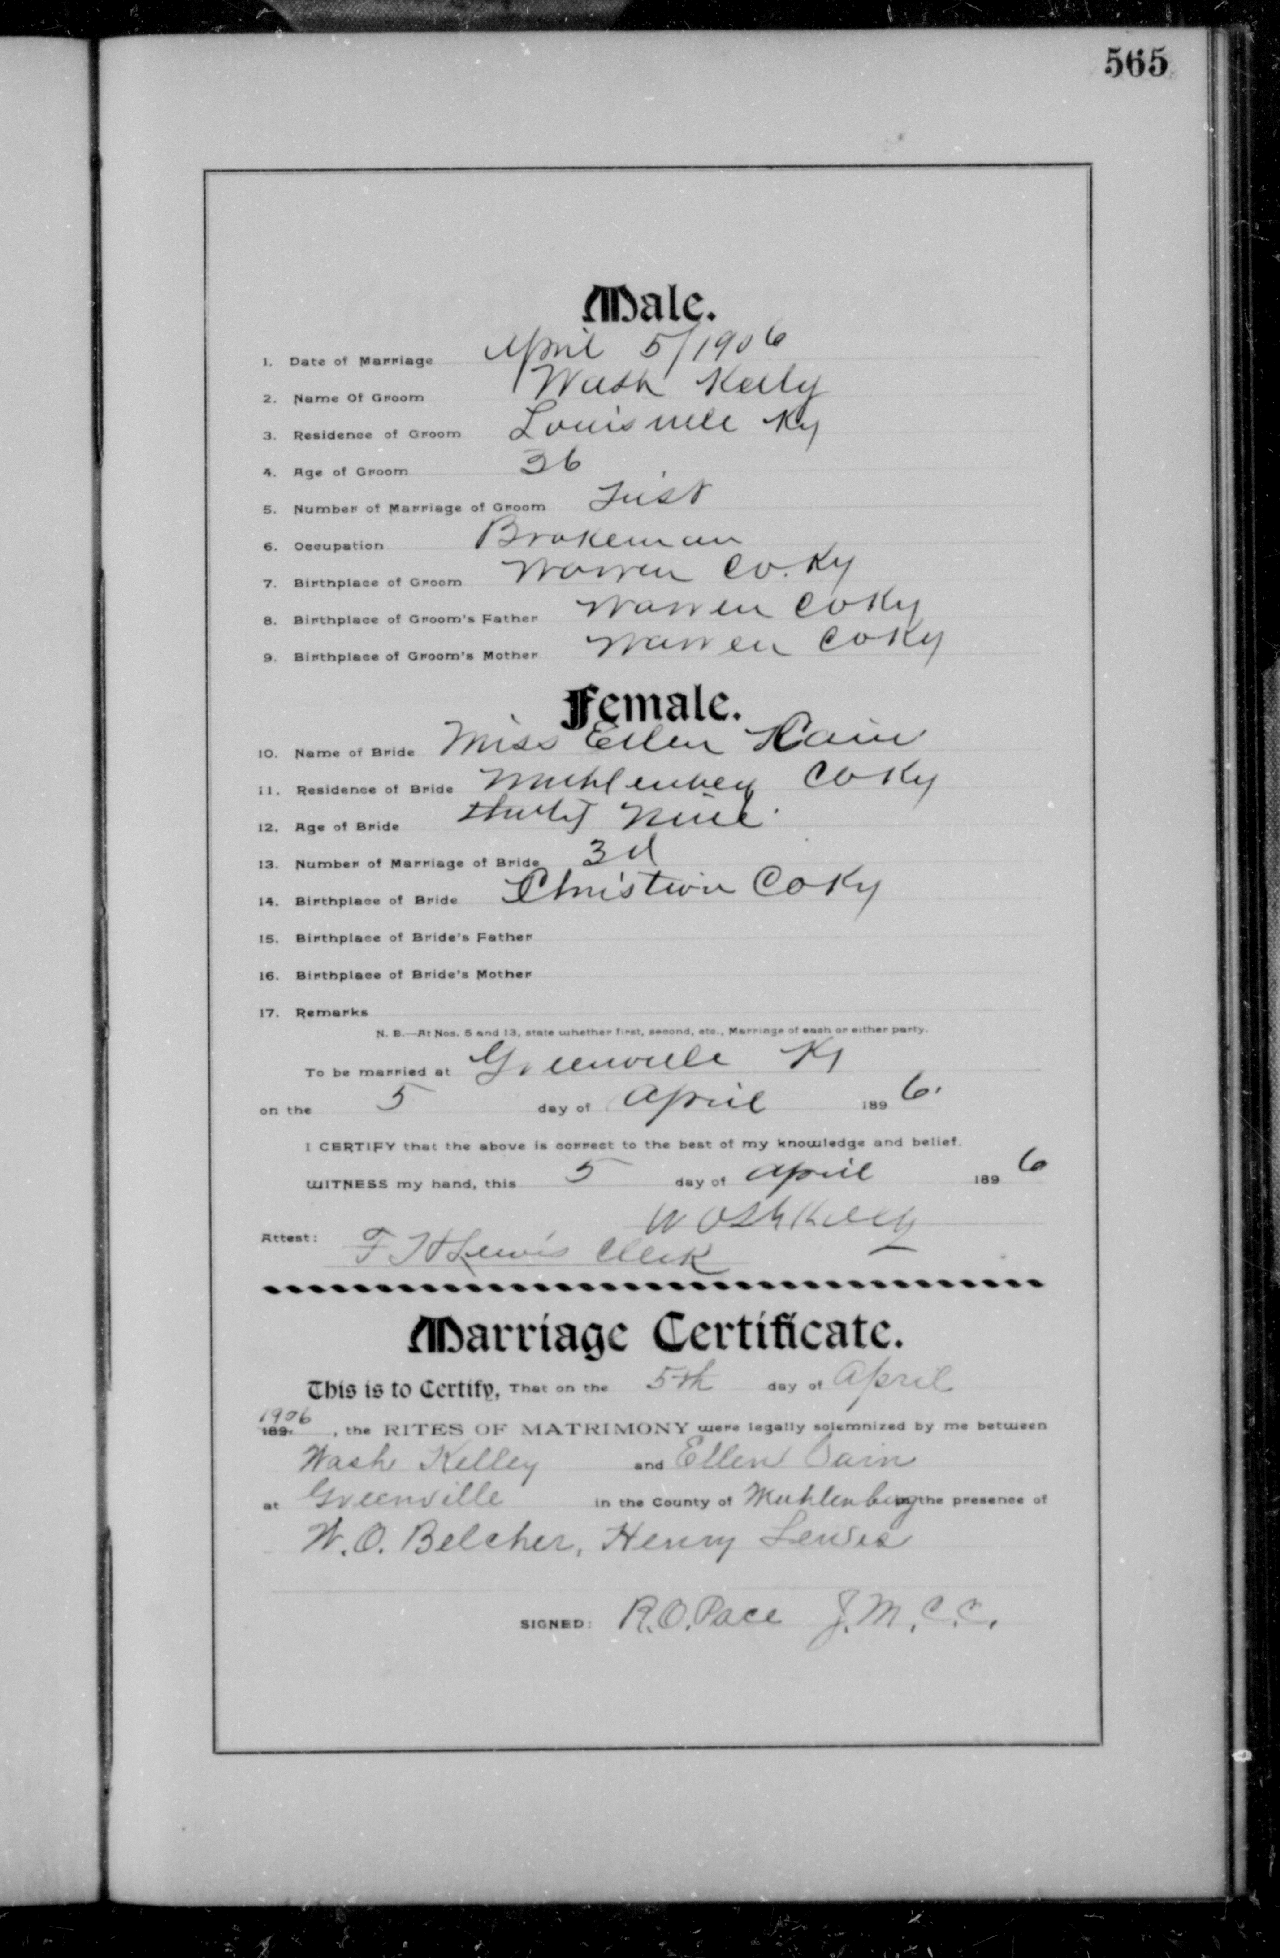 565
Male.
1. Date of Marriage April 5/1906
2. Name Of Groom Wash Kelly
3. Residence of Groom Louisville Ky
4. Age of Groom 36
5. Number of Marriage of Groom First
6. Occupation Brakeman
7. Birthplace of Groom Warren Co. Ky
8. Birthplace of Groom's Father Warren Co Ky
9. Birthplace of Groom's Mother Warren Co Ky
Female.
10. Name of Bride Miss Ellen Cain
11. Residence of Bride Muhlenberg Co Ky
12. Age of Bride Thirty Nine
13. Number of Marriage of Bride 3d
14. Birthplace of Bride Christian Co Ky
15. Birthplace of Bride's Father
16. Birthplace of Bride's Mother
17. Remarks
N. B.—At Nos. 5 and 13, state whether first, second, etc., Marriage of each or either party.
To be married at Greenville Ky
on the 5 day of April 189 6.
I CERTIFY that the above is correct to the best of my knowledge and belief.
WITNESS my hand, this 5 day of April 189 6
Wash Kelly
Attest: F H Lewis Clerk
Marriage Certificate.
This is to Certify, That on the 5th day of April
189 1906, the RITES OF MATRIMONY were legally solemnized by me between
Wash Kelley and Ellen Cain
at Greenville in the County of Muhlenberg in the presence of
W. O. Belcher, Henry Lewis
SIGNED: R. O. Pace J. M. C. C.